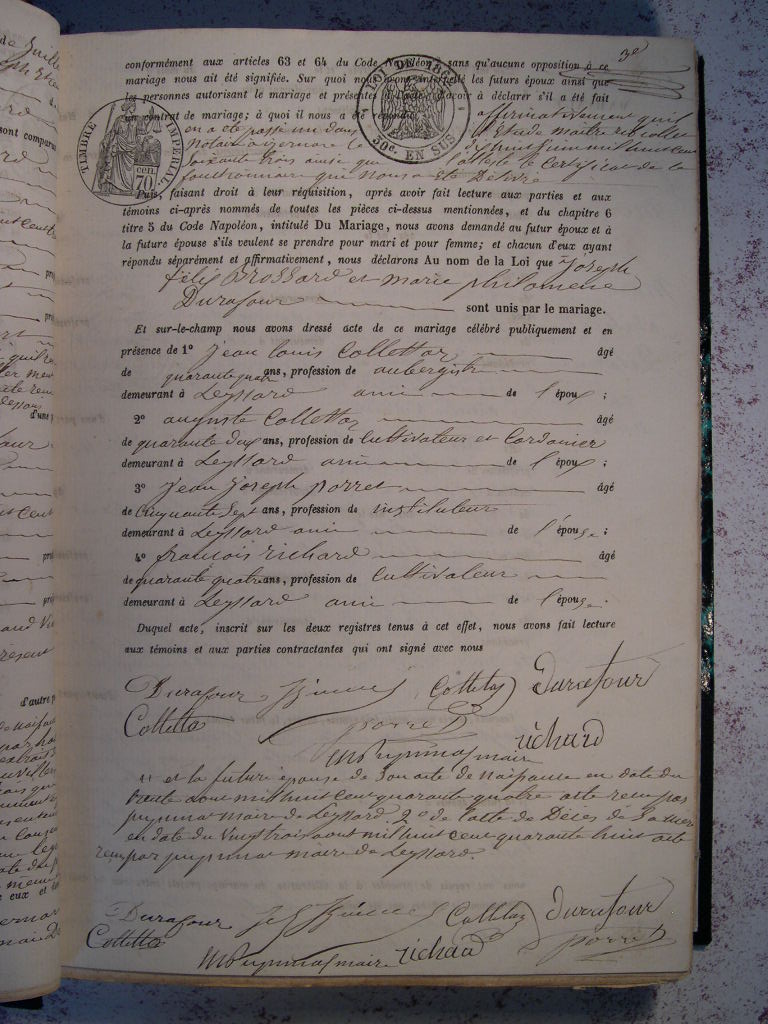 3e
conformément aux articles 63 et 64 du Code Napoléon, sans qu'aucune opposition à ce
mariage nous ait été signifiée. Sur quoi nous avons interpellé les futurs époux ainsi que
les personnes autorisant le mariage et présentes d'avoir à déclarer s'il a été fait
un contrat de mariage; à quoi il nous a été répondu affirmativement qu'il
en a été passé un dans l'étude maître Collet
notaire à izernore le dix huit juin mil huit cent
soixante trois ainsi que l'atteste le certificat de ce
fonctionnaire qui nous a été délivré
TIMBRE IMPÉRIAL
70 cen.
LOI DE 18
50c. EN SUS
Puis, faisant droit à leur réquisition, après avoir fait lecture aux parties et aux
témoins ci-après nommés de toutes les pièces ci-dessus mentionnées, et du chapitre 6
titre 5 du Code Napoléon, intitulé Du Mariage, nous avons demandé au futur époux et à
la future épouse s'ils veulent se prendre pour mari et pour femme; et chacun d'eux ayant
répondu séparément et affirmativement, nous déclarons Au nom de la Loi que Joseph
félix Brossard et marie philomene
Durafour sont unis par le mariage.
Et sur-le-champ nous avons dressé acte de ce mariage célébré publiquement et en
présence de 1° jean louis Collettaz âgé
de quarante quatre ans, profession de aubergiste
demeurant à Leyssard ami de l'époux;
2° auguste Collettaz âgé
de quarante deux ans, profession de Cultivateur et Cordonier
demeurant à Leyssard ami de l'époux;
3° jean joseph porret âgé
de Cinquante Sept ans, profession de instituteur
demeurant à Leyssard ami de l'épouse;
4° françois richard âgé
de quarante quatre ans, profession de Cultivateur
demeurant à Leyssard ami de l'épouse.
Duquel acte, inscrit sur les deux registres tenus à cet effet, nous avons fait lecture
aux témoins et aux parties contractantes qui ont signé avec nous
Durafour Collettaz Durafour
Colletta porret
maire richard
et la future épouse de Son acte de Naissance en date du
trente aout mil huit cent quarante quatre acte reçu par
maire de Leyssard. 2° de l'acte de Décès de Sa mère
en date du Vingt trois aout mil huit cent quarante huit acte
reçu par maire de Leyssard.
Durafour Collettaz Durafour
Colletta maire richard porret